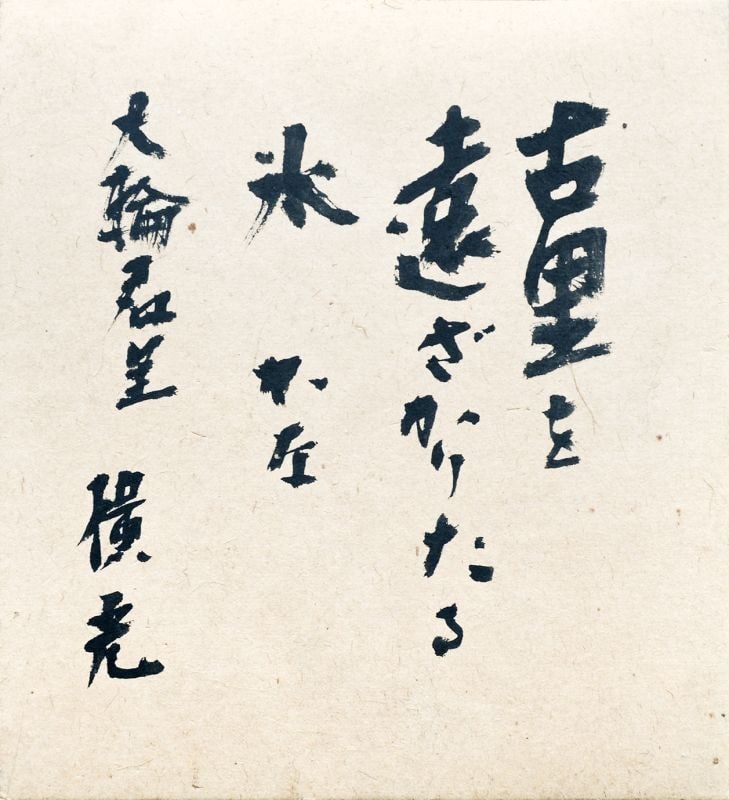 古里を
遠ざかりたる
氷かな
大輪君呈 横虎